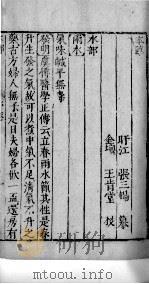 盱江 張三錫 纂
金壇 王肯堂 校
水部
雨水
氣味鹹平無毒
發明虞摶醫學正傳云立春雨水其性是春
升生發之氣故可以煮中氣不足清氣不升之
藥古方婦人無子是日夫婦各飲一盃還房有
www.dukan.com